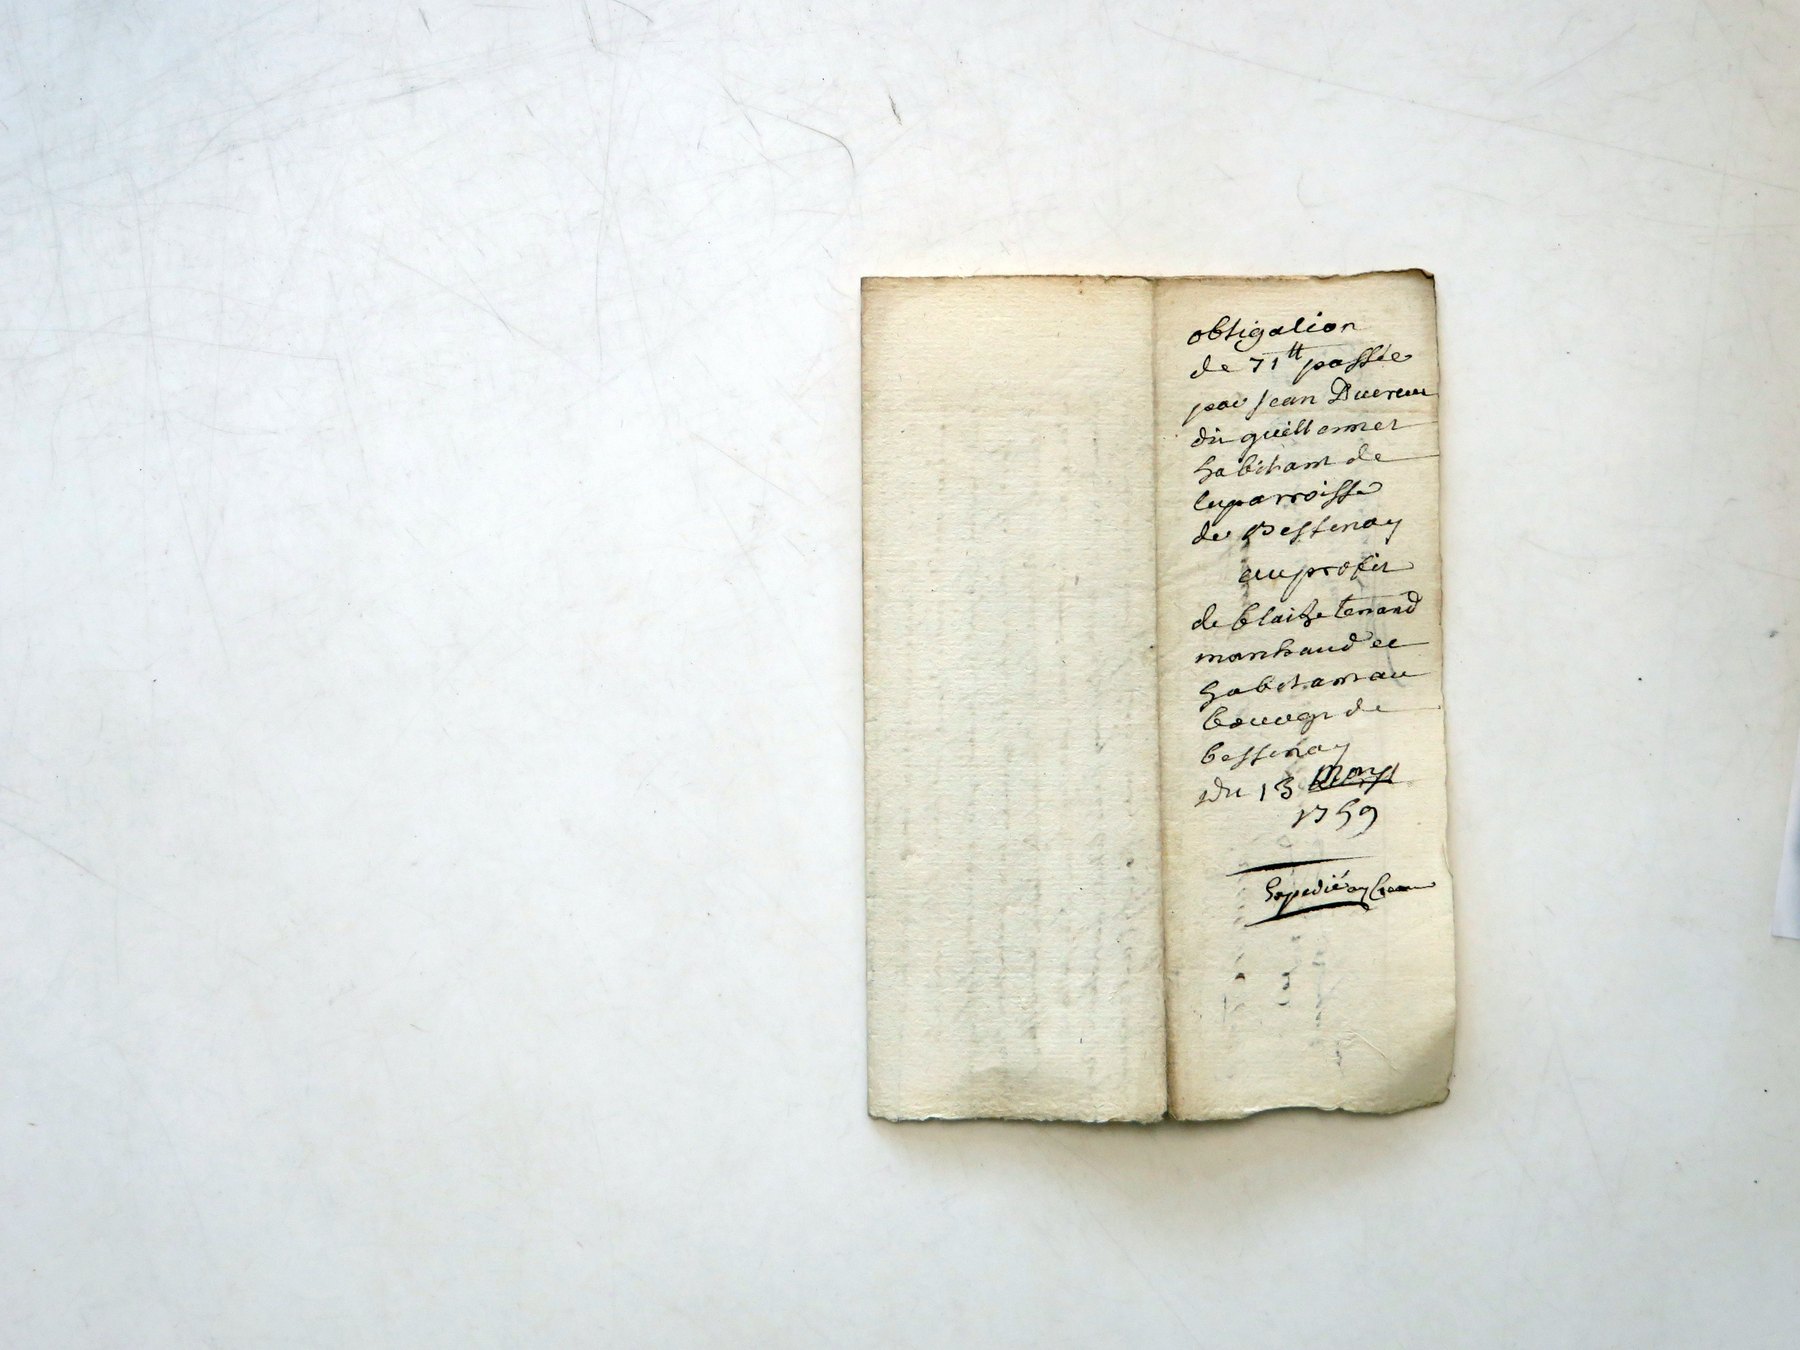 obligation
de 71tt passée
par Jean Ducreux
dit guillermet
habitant de
la parroisse
de Bessenay
au profit
de blaise
marchand et
habitant au
bourg de
bessenay
du 13 Mars
1759
Expedié